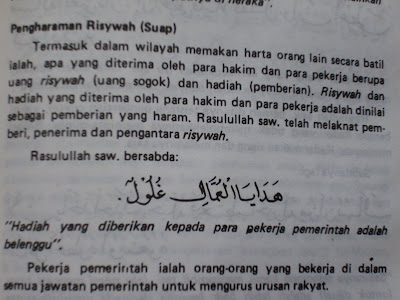 di neraka".
Pengharaman Risywah (Suap)
Termasuk dalam wilayah memakan harta orang lain secara batil
ialah, apa yang diterima oleh para hakim dan para pekerja berupa
uang risywah (uang sogok) dan hadiah (pemberian). Risywah dan
hadiah yang diterima oleh para hakim dan para pekerja adalah dinilai
sebagai pemberian yang haram. Rasulullah saw. telah melaknat pem-
beri, penerima dan pengantara risywah.
Rasulullah saw. bersabda:
هَدَايَا الْعُمَّالِ غُلُولٌ.
"Hadiah yang diberikan kepada para pekerja pemerintah adalah
belenggu".
Pekerja pemerintah ialah orang-orang yang bekerja di dalam
semua jawatan pemerintah untuk mengurus urusan rakyat.